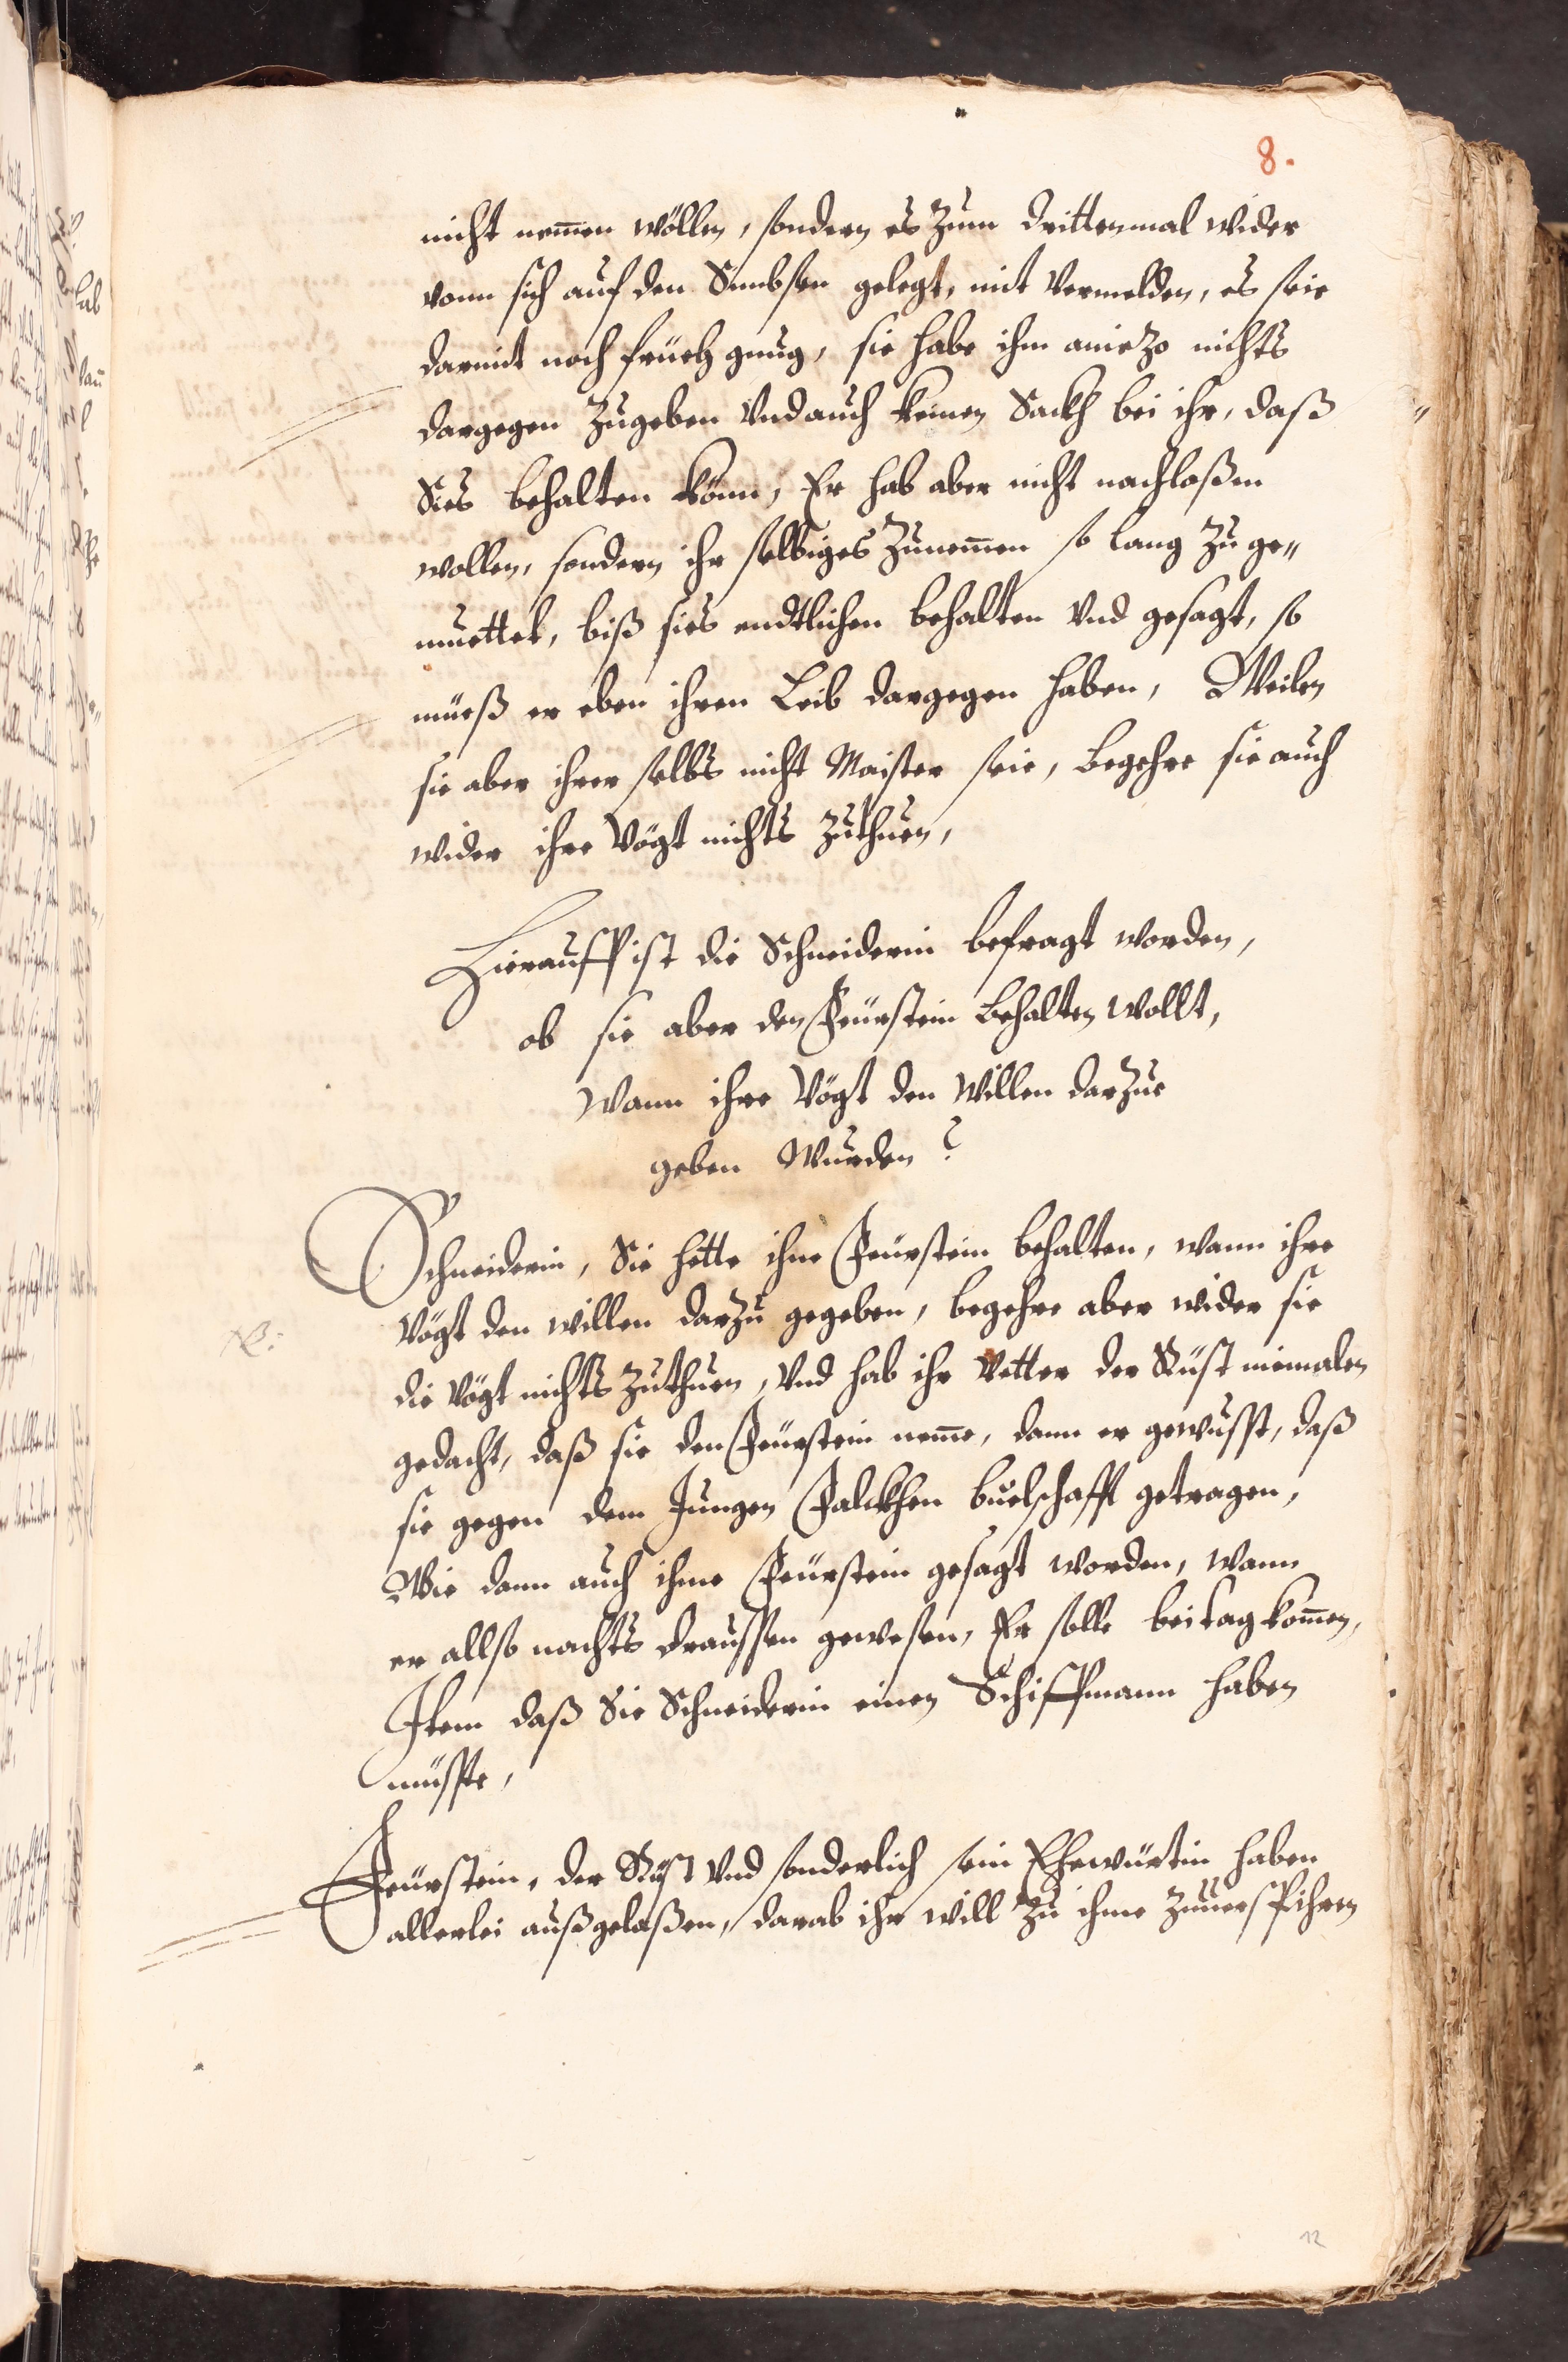 8.
nicht nem̅en wöllen, sondern es zum drittenmal wider
vonn sich auf den Simbsen gelegt, mit vermelden, es seie
darmit noch früeh gnug, sie habe ihm aniezo nichts
dargegen zugeben vnd auch keinen Sackh bei ihr, daß
Sies behalten könn, Er hab aber nicht nachloßen
wollen, sondern ihr selbiges zunem̅en so lang zu ge„
muettet, biß sies endtlichen behalten vnd gesagt, so
müeß er eben ihren Leib dargegen haben, Weilen
sie aber ihrer selbs nicht Maister seie, begehre sie auch
wider ihre Vögt nichts zuthuen,
Hierauff ist die Schneiderin befragt worden,
ob sie aber den Feürstein behalten wollt,
Wann ihre Vögt den willen darzue
geben wurden?
Schneiderin, Sie hette ihne Feürstein behalten, wann ihre
Vögt den willen darzu gegeben, begehre aber wider sie
N:
die Vögt nichts zuthuen, vnd hab ihr Vetter der Rüst niemalen
gedacht, daß sie den Feürstein nem̅e, dann er gewusst, daß
sie gegen dem Jungen Falckhen buelschafft getragen,
Wie dann auch ihme Feürstein gesagt worden, wann
er allso nachts draussen gewesen, Er solle bei tag kom̅en,
Item daß Sie Schneiderin einen Schiffmann haben
müsste,
Feürstein, der Rüst vnd sonderlich sein Ehewürtin haben
allerlei außgelaßen, darab ihr will zu ihme zuuerspihren
12